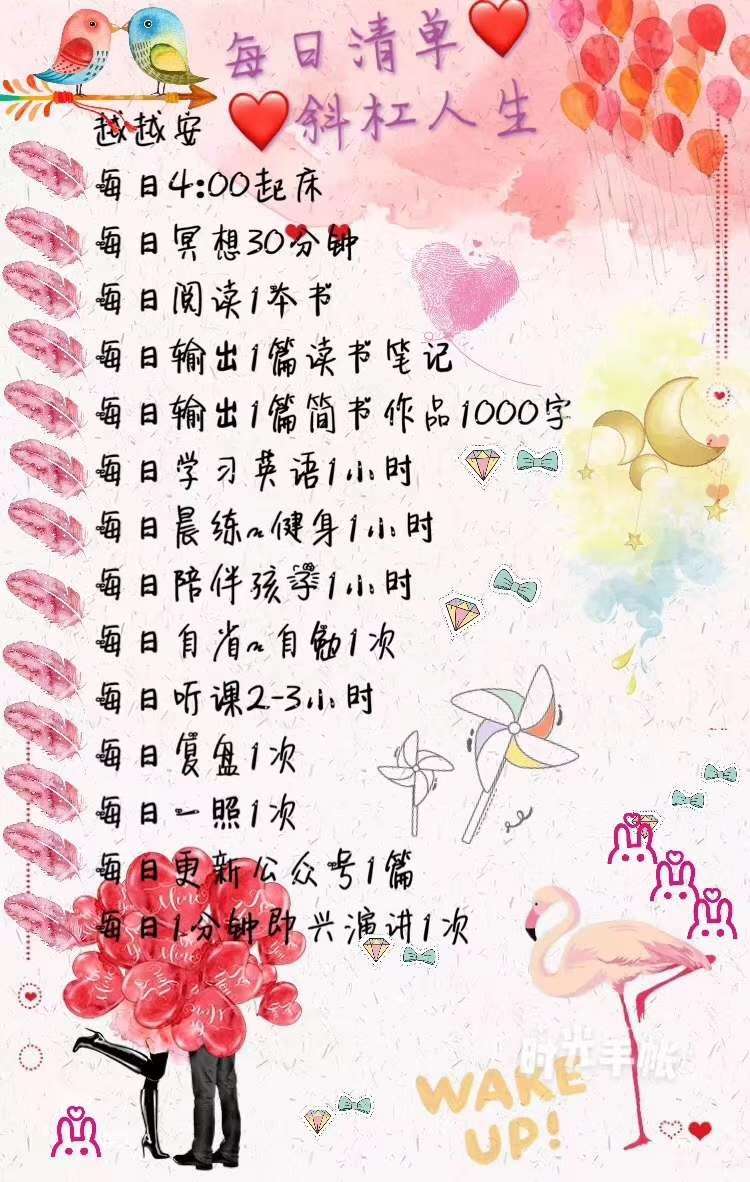 每日清单
斜杠人生
越越安
每日4:00起床
每日冥想30分钟
每日阅读1本书
每日输出1篇读书笔记
每日输出1篇简书作品1000字
每日学习英语1小时
每日晨练~健身1小时
每日陪伴孩子学1小时
每日自省~自勉1次
每日听课2-3小时
每日复盘1次
每日一照1次
每日更新公众号1篇
每日1分钟即兴演讲1次
时光手帐
WAKE
UP!